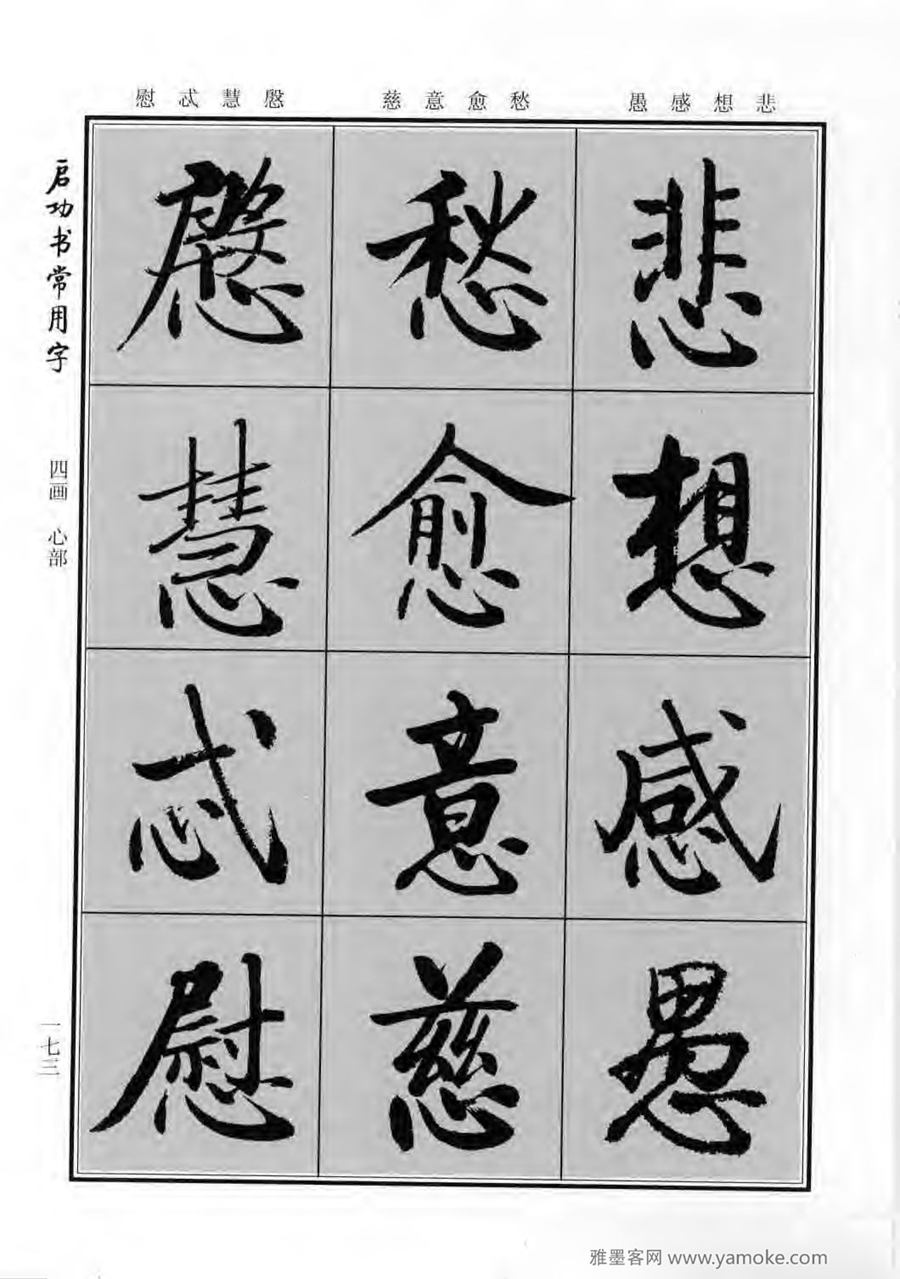 悲想感愚
愁愈意慈
慇慧忒慰
悲
想
感
愚
愁
愈
意
慈
慇
慧
忒
慰
启功书常用字
四画 心部
一七三
雅墨客网 www.yamoke.com